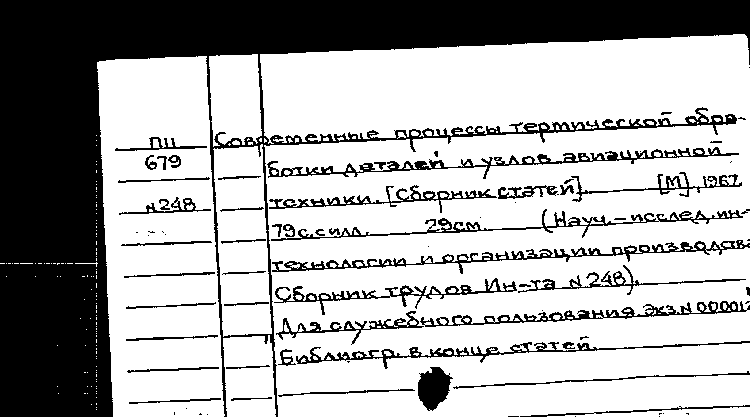 ПШ Современные процессы термической обра-
679 ботки деталей и узлов авиационной
N248 техники. [Сборник статей]. [М], 1967.
79с.силл. 29см. (Науч.-исслед.ин-
технологии и организации производства
Сборник трудов Ин-та N 248).
"Для служебного пользования Экз.N
Библиогр. в конце статей.